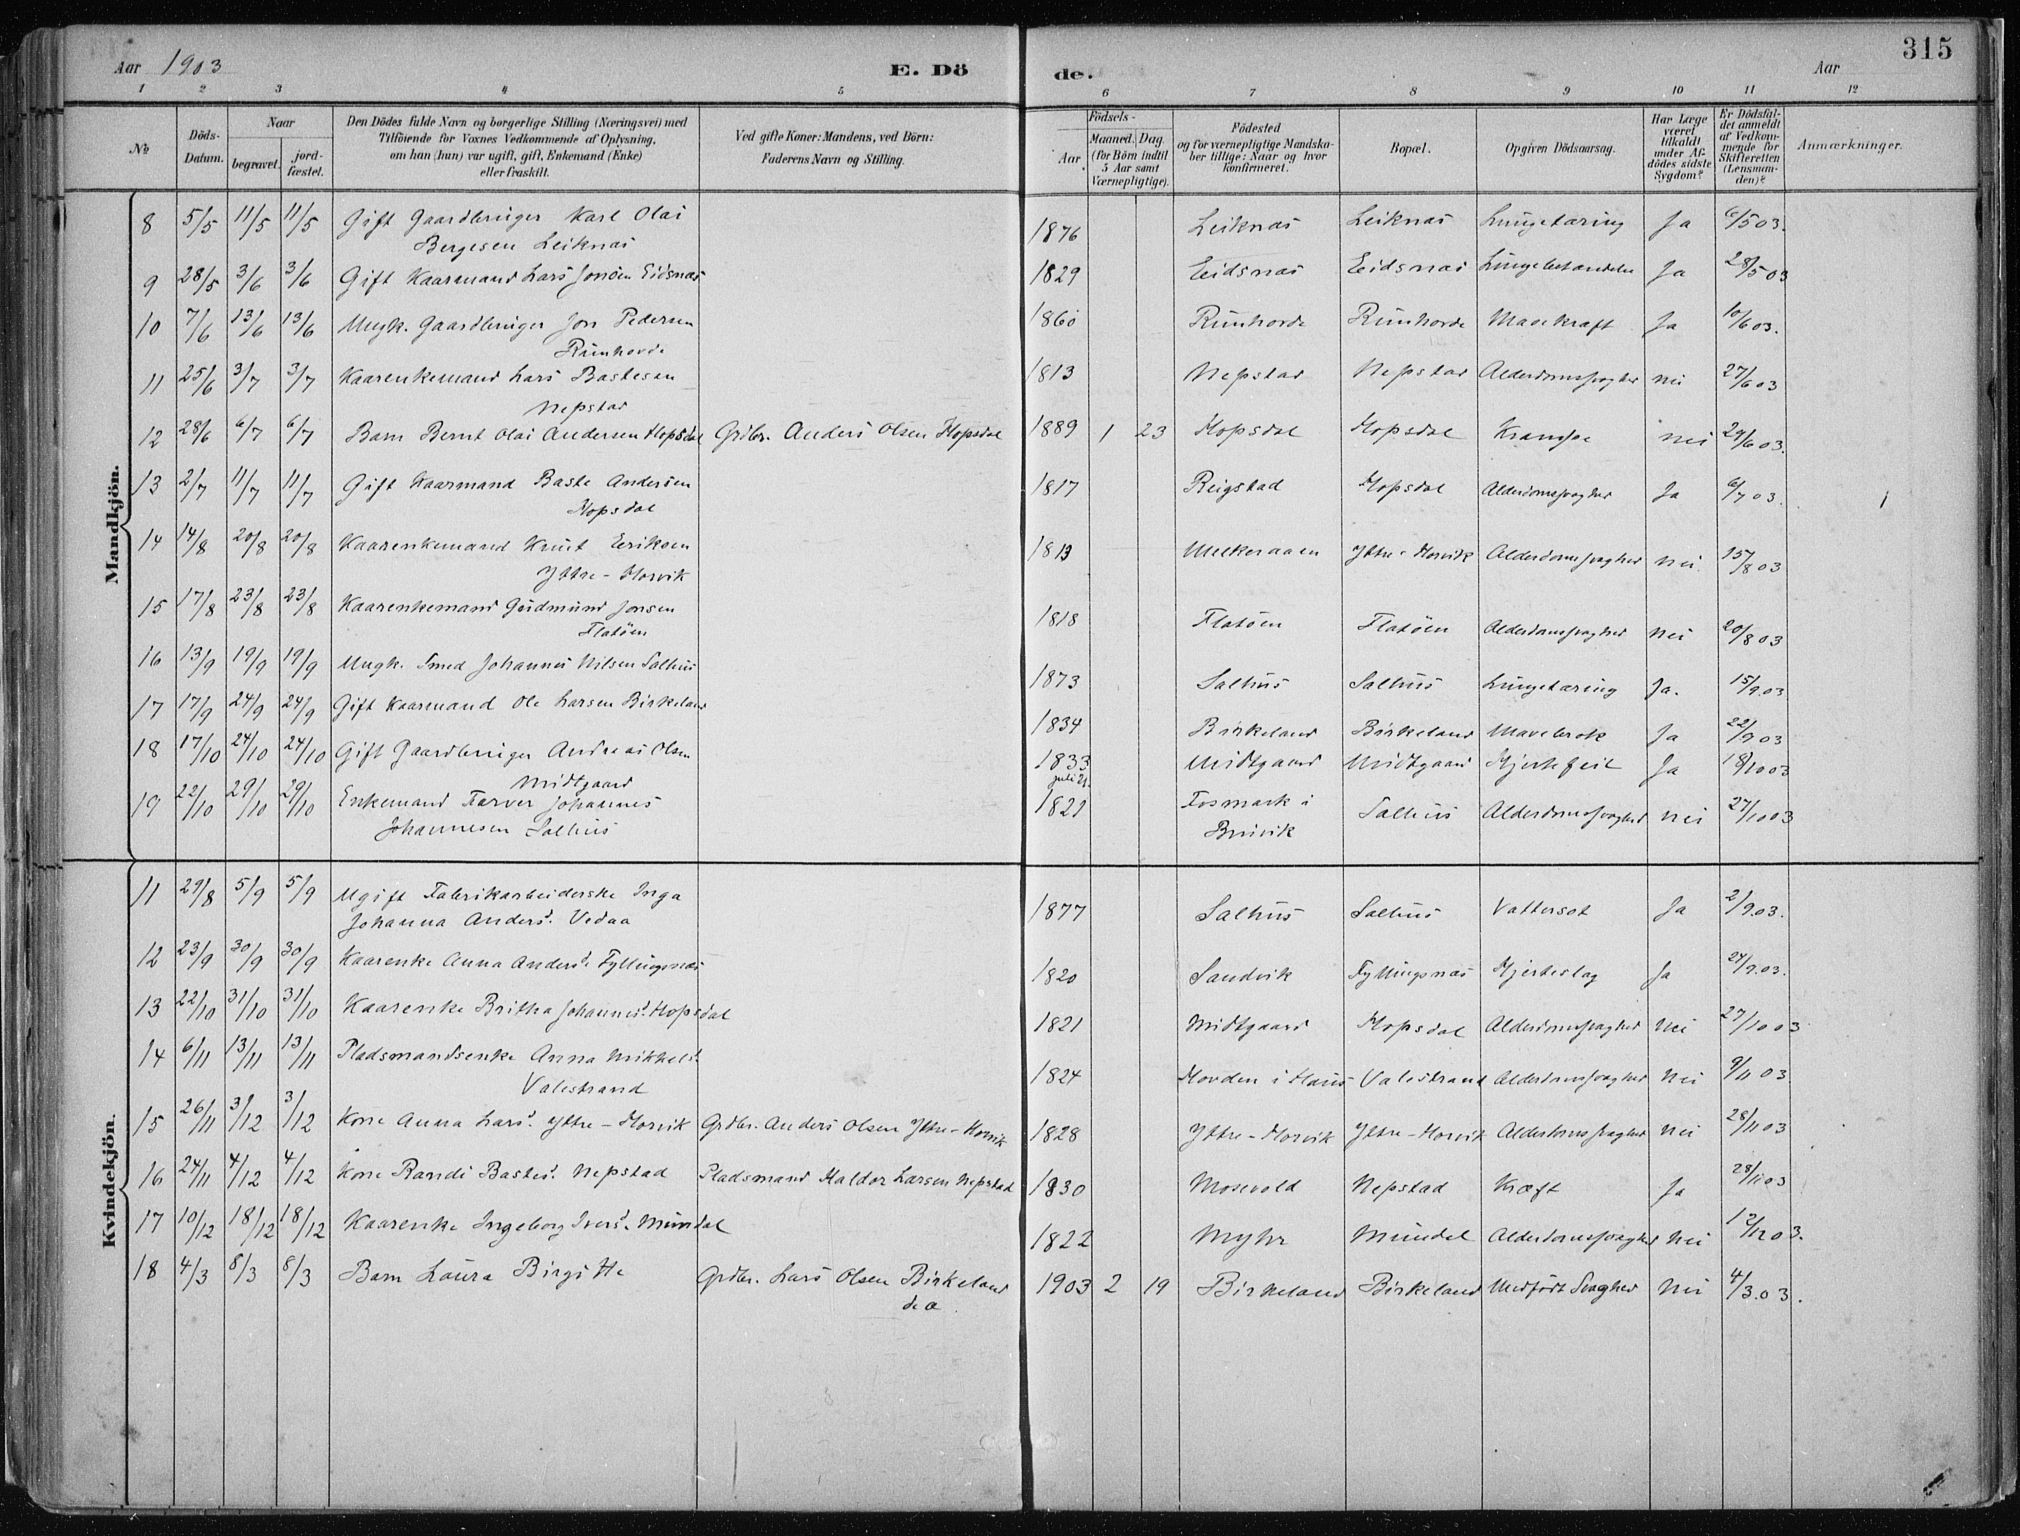 315
Aar 1903 E. Dö de. Aar
1 2 3 4 5 6 7 8 9 10 11 12
№
Döds-Datum.
Naar
begravet.
jordfæstet.
Den Dödes fulde Navn og borgerlige Stilling (Næringsvei) med
Tilföiende for Voxnes Vedkommende af Oplysning,
om han (hun) var ugift, gift, Enkemand (Enke)
eller fraskilt.
Ved gifte Koner: Mandens, ved Börn:
Faderens Navn og Stilling.
Födsels-
Aar.
Maaned. Dag.
(for Börn indtil
5 Aar samt
Værnepligtige).
Födested
og for værnepligtige Mandska-
ber tillige: Naar og hvor
konfirmeret.
Bopæl.
Opgiven Dödsaarsag.
Har Læge
været
tilkaldt
under Af-
dödes sidste
Sygdom?
Er Dödsfal-
det anmeldt
af Vedkom-
mende for
Skifteretten
(Lensman-
den)?
Anmærkninger.
Mandkjön.
8 5/5 11/5 11/5 Gift Gaardbruger Karl Olai 1876 Leiknas Leiknas Lungetæring Ja 6/5 03.
Bergesen Leiknas
9 28/5 3/6 3/6 Gift Kaarmand Lars Jonsen Eidsnas 1829 Eidsnas Eidsnas Ja 28/5 03
10 7/6 13/6 13/6 Ungk. Gaardbruger Jon Pedersen 1860 Runhovde Runhovde Mavekræft Ja 10/6 03.
Runhovde
11 25/6 3/7 3/7 Kaarenkemand Lars Bastesen 1813 Nepstad Nepstad Alderdomssvaghed nei 27/6 03
Nepstad
12 28/6 6/7 6/7 Barn Bernt Olai Andersen Hopsdal Grdbr. Anders Olsen Hopsdal 1889 1 23 Hopsdal Hopsdal Krampe nei 29/6 03.
13 2/7 11/7 11/7 Gift Kaarmand Baste Andersen 1817 Reigstad Hopsdal Alderdomssvaghed Ja 6/7 03.
Hopsdal
14 14/8 20/8 20/8 Kaarenkemand Knut Eriksen 1813 Melkeraaen Yttre-Horvik Alderdomssvaghed nei. 15/8 03
Yttre-Horvik
15 17/8 23/8 23/8 Kaarenkemand Gudmund Jonsen 1818 Flatöen Flatöen Alderdomssvaghed nei 20/8 03
Flatöen
16 13/9 19/9 19/9 Ungk. Smed Johannes Nilsen Salhus 1873 Salhus Salhus Lungetæring Ja. 15/9 03
17 17/9 24/9 24/9 Gift Kaarmand Ole Larsen Birkeland 1834 Birkeland Birkeland Mavebrok Ja 22/9 03
18 17/10 24/10 24/10 Gift Gaardbruger Andreas Olsen 1833 Midtgaard Midtgaard Hjertefeil Ja 18/10 03
Midtgaard juli 21.
19 22/10 29/10 29/10 Enkemand Farver Johannes 1821 Fosmark i Salhus Alderdomssvaghed nei 27/10 03
Johannesen Salhus Bruvik
Kvindekjön.
11 29/8 5/9 5/9 Ugift Fabrikarbeiderske Inga 1877 Salhus Salhus Vattersot Ja 2/9 03.
Johanna Andersd. Vedaa
12 23/9 30/9 30/9 Kaarenke Anna Andersd. Fyllingsnæs 1820 Sandvik Fyllingsnæs Hjerteslag Ja 24/9 03.
13 22/10 31/10 31/10 Kaarenke Britha Johannesd. Hopsdal 1821 Midtgaard Hopsdal Alderdomssvaghed Nei 27/10 03
14 6/11 13/11 13/11 Pladsmandsenke Anna Mikkelsd. 1824 Hovden i Haus Valestrand Alderdomssvaghed Nei 9/11 03
Valestrand
15 26/11 3/12 3/12 Kone Anna Larsd. Yttre-Horvik Grdbr. Anders Olsen Yttre-Horvik 1828 Yttre-Horvik Yttre-Horvik Alderdomssvaghed Nei 28/11 03
16 24/11 4/12 4/12 Kone Randi Bastesd. Nepstad Pladsmand Haldor Larsen Nepstad 1830 Mosevold Nepstad Kræft Ja 28/11 03
17 10/12 18/12 18/12 Kaarenke Ingeborg Iversd. Mundal 1822 Myhr Mundal Alderdomssvaghed Nei 12/12 03.
18 4/3 8/3 8/3 Barn Laura Birgitte Grdbr. Lars Olsen Birkeland 1903 2 19 Birkeland Birkeland Medfödt Svaghed Nei 4/3.03.